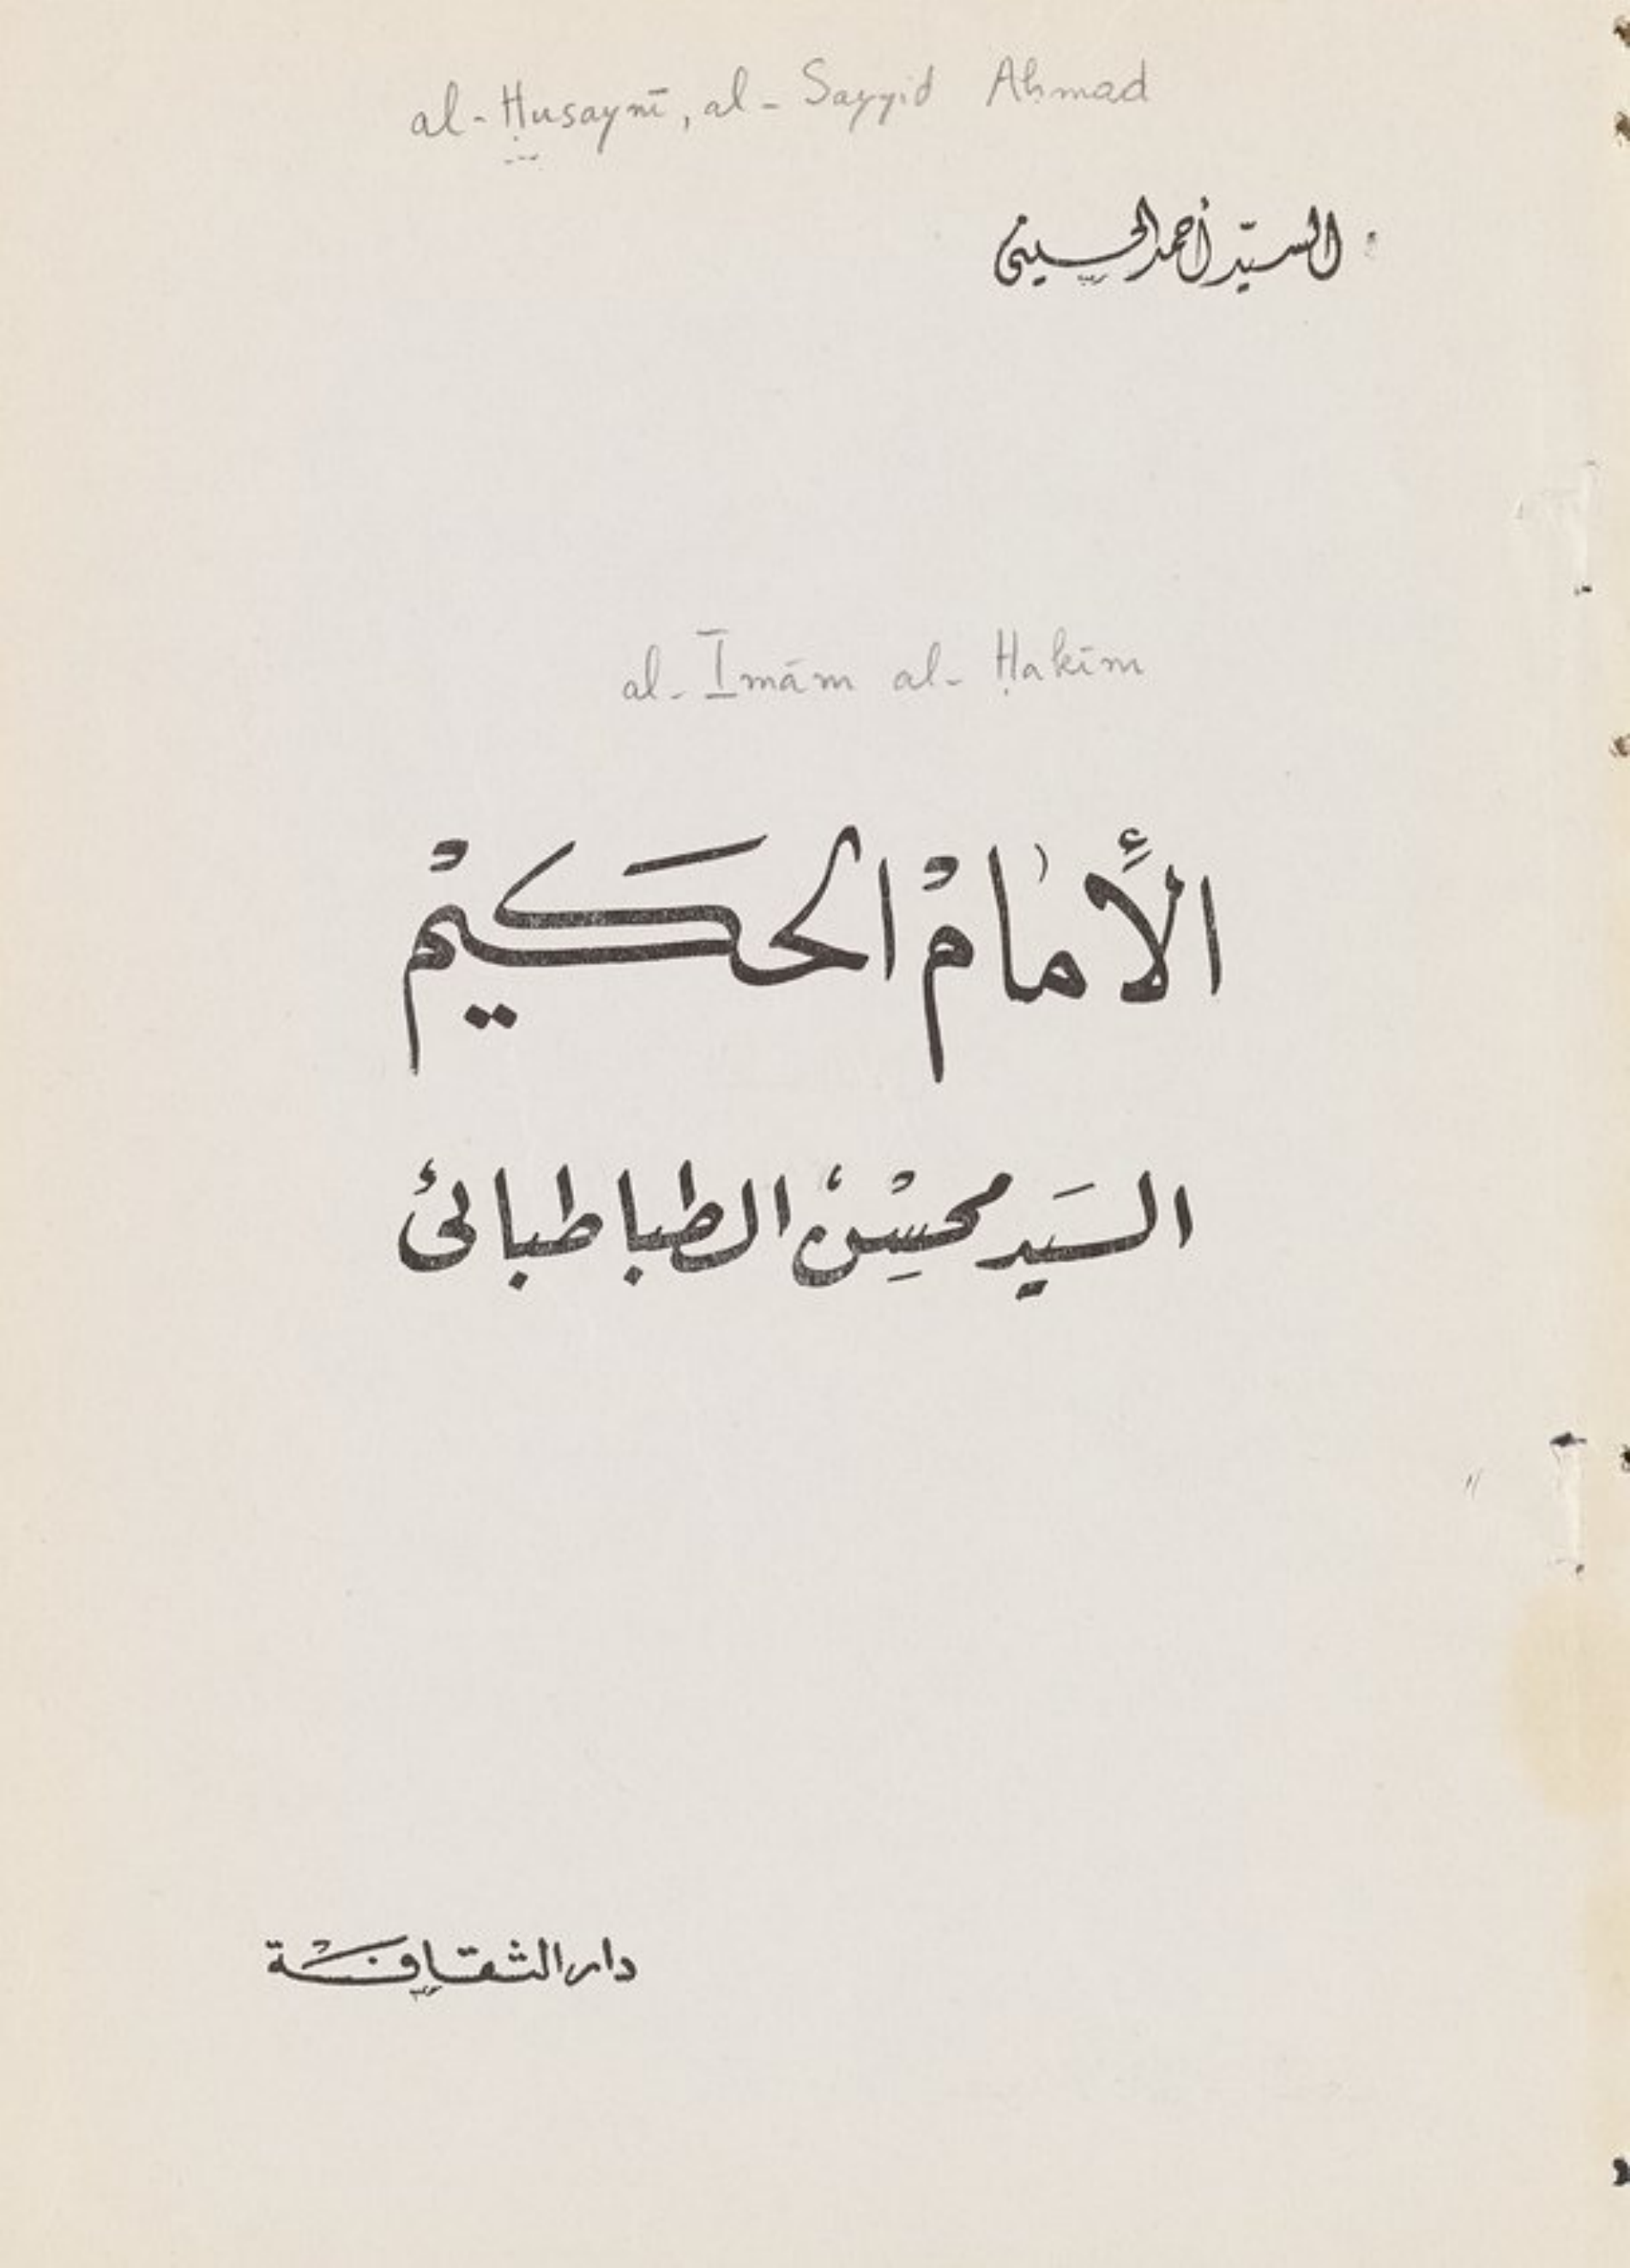 al-Ḥusaynī, al-Sayyid Aḥmad
السيّد أحمد الحسيني
al-Īmām al-Ḥakīm
الأمامْ الحَكيمْ
السَيد محسِنْ الطباطبائئ
دار الثقافَة